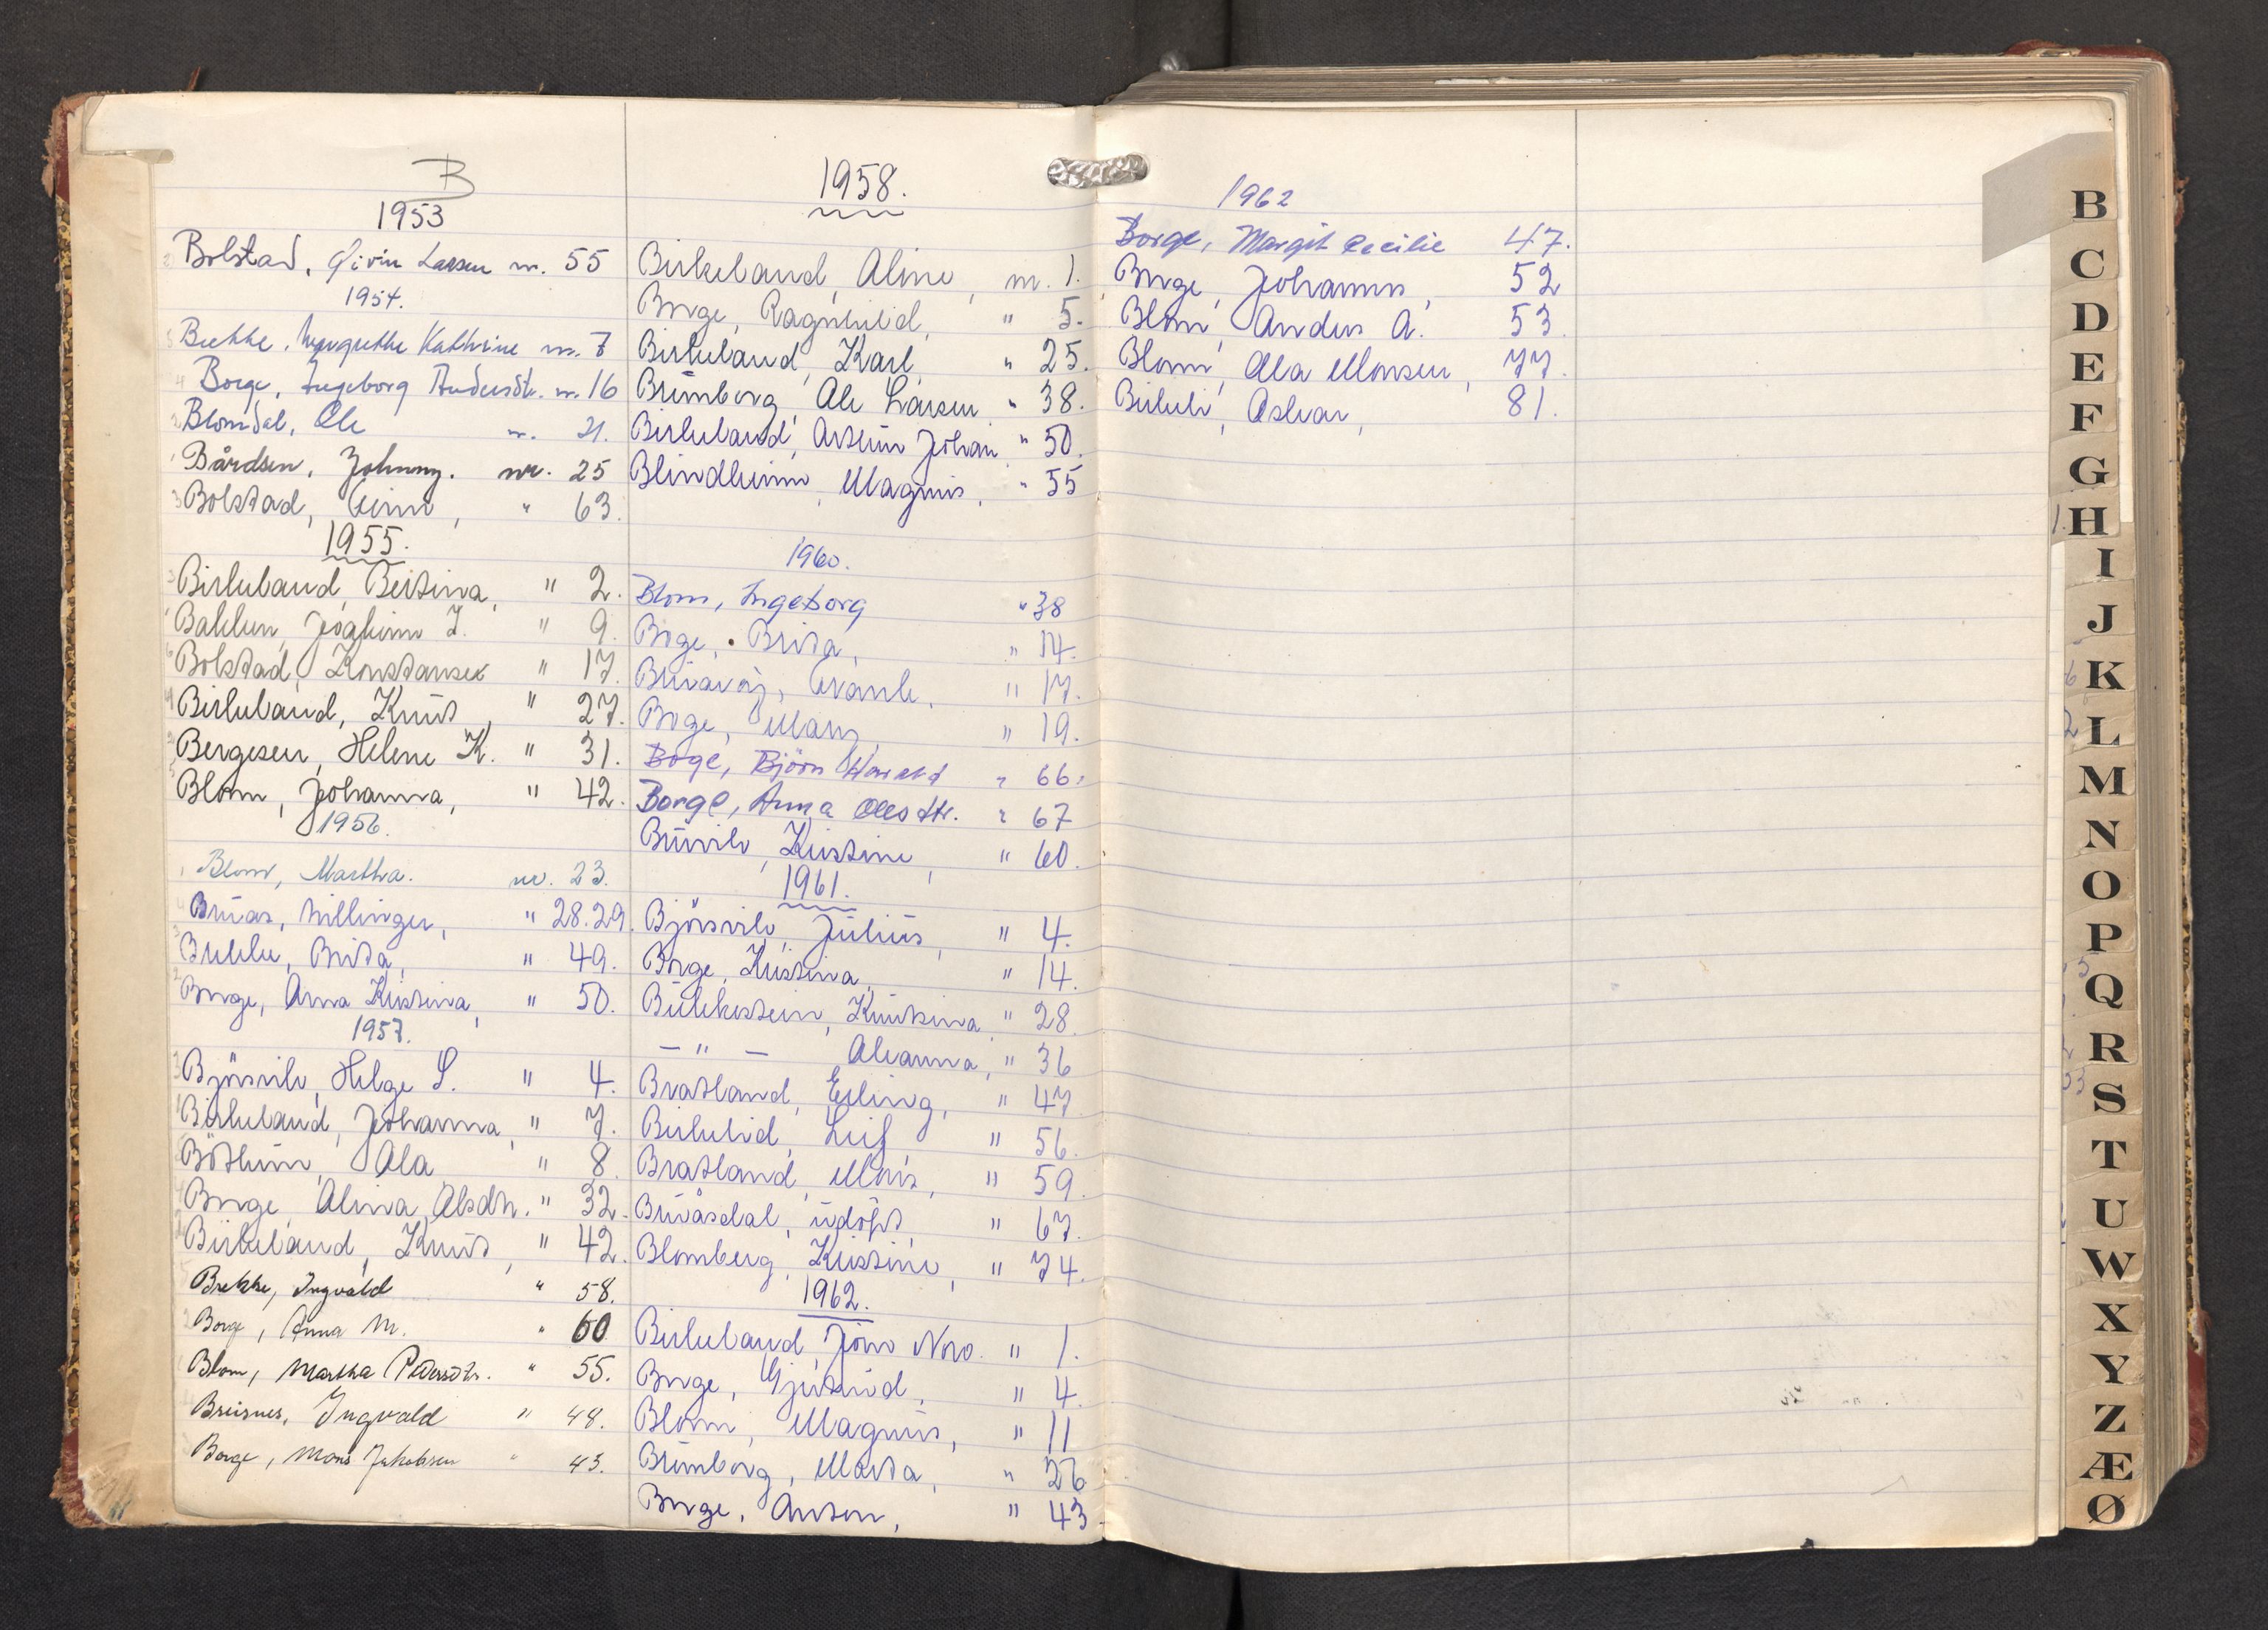 B
1953
Bolstad, Eivin Larsen nr. 55
1954.
Brekke, Margrethe Kathrine nr. 7
Borge, Ingeborg Andersdtr. nr. 16
Blomdal, Ole nr. 21.
Bårdsen, Johnny. nr. 25
Bolstad, " 63.
1955.
Birkeland, Bertina, " 2.
Bakken, Joakim I. " 9.
Bolstad, Konstanse " 17.
Birkeland, Knut, " 27.
Bergesen, Helene K. " 31.
Blom, Johanna, " 42.
1956.
Blom, Martha. nr. 23.
Bruås, tvillinger, " 28.29.
Brekke, Brita, " 49.
Borge, Anna Kristina, " 50.
1957.
Bjørsvik, Helge S. " 4.
Birkeland, Johanna, " 7.
Bøthun, Ola " 8.
Borge, Alina Olsdtr. " 32.
Birkeland, Knut, " 42.
Brekke, Ingvald " 58.
Borge, Anna M. " 60
Blom, Martha Pedersdtr. " 55.
Breisnes, Ingvald " 48.
Borge, Mons Jakobsen " 43.
1958.
Birkeland, Aline, nr. 1.
Borge, Ragnhild, " 5.
Birkeland, Karl, " 25.
Brunborg, Ole Larsen " 38.
Birkeland, Johan " 50.
Blindheim, Magnus, " 55
1960.
Blom, Ingeborg " 38
Boge, Brita, " 14.
" 17.
Boge, Mary, " 19.
Boge, Bjørn Harald " 66.
Borge, Anna Olesdtr. " 67
Kristine, " 60.
1961.
Bjørsvik, Julius, " 4.
Borge, Kristina, " 14.
Knutsina " 28.
— " — Oleanna, " 36
Bratland, Erling, " 47
Birkelid, Leif, " 56.
Bratland, Mons, " 59.
Bruåsdal, udøpt, " 67.
Blomberg, Kristine, " 74.
1962.
Birkeland, Jon Nord. " 1.
Borge, Gjertrud, " 4.
Blom, Magnus, " 11
Brunborg, Marta, " 26
Borge, Anton, " 43.
1962
Borge, Margit Cecilie 47.
Borge, Johannes, 52
Blom, Anders A. 53.
Blom, Ola Monsen, 77.
Oskar, 81.
B
C
D
E
F
G
H
I
J
K
L
M
N
O
P
Q
R
S
T
U
W
X
Y
Z
Æ
Ø